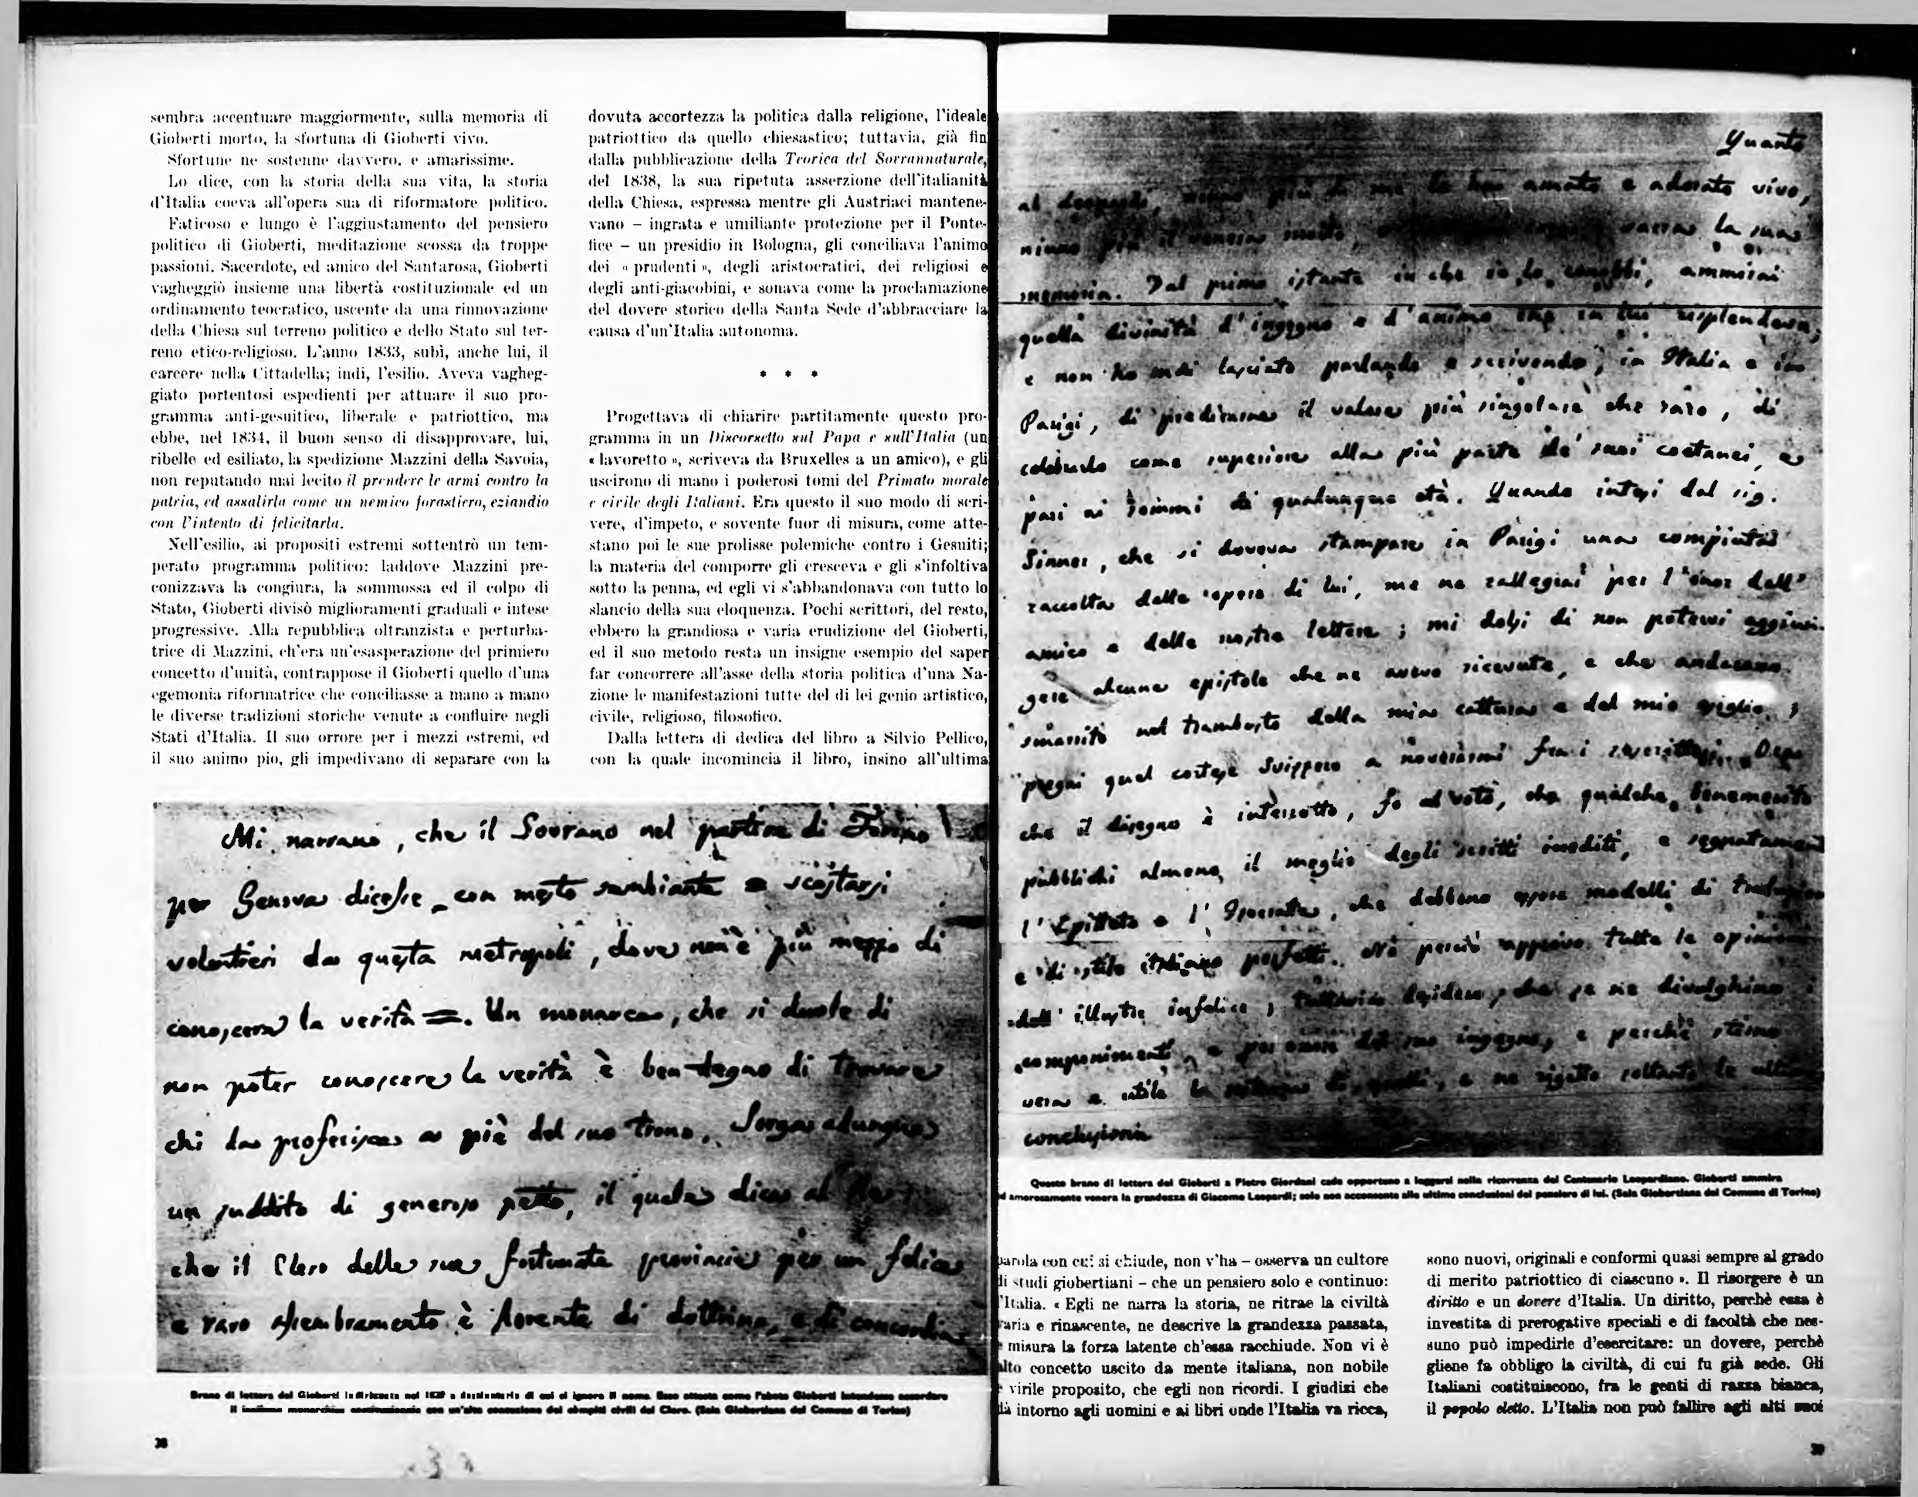 sembra accentuare maggiormente, sulla memoria di
Gioberti morto, la sfortuna di Gioberti vivo.
Sfortune ne sostenne davvero, e amarissime.
Lo dice, con la storia della sua vita, la storia
d'Italia coeva all'opera sua di riformatore politico.
Faticoso e lungo è l'aggiustamento del pensiero
politico di Gioberti, meditazione scossa da troppe
passioni. Sacerdote, ed amico del Santarosa, Gioberti
vagheggiò insieme una libertà costituzionale ed un
ordinamento teocratico, uscente da una rinnovazione
della Chiesa sul terreno politico e dello Stato sul ter-
reno etico-religioso. L'anno 1833, subì, anche lui, il
carcere nella Cittadella; indi, l'esilio. Aveva vagheg-
giato portentosi espedienti per attuare il suo pro-
gramma anti-gesuitico, liberale e patriottico, ma
ebbe, nel 1834, il buon senso di disapprovare, lui,
ribelle ed esiliato, la spedizione Mazzini della Savoia,
non reputando mai lecito il prendere le armi contro la
patria, ed assalirla come un nemico forastiero, eziandio
con l'intento di felicitarla.
Nell'esilio, ai propositi estremi sottentrò un tem-
perato programma politico: laddove Mazzini pre-
conizzava la congiura, la sommossa ed il colpo di
Stato, Gioberti divisò miglioramenti graduali e intese
progressive. Alla repubblica oltranzista e perturba-
trice di Mazzini, ch'era un'esasperazione del primiero
concetto d'unità, contrappose il Gioberti quello d'una
egemonia riformatrice che conciliasse a mano a mano
le diverse tradizioni storiche venute a confluire negli
Stati d'Italia. Il suo orrore per i mezzi estremi, ed
il suo animo pio, gli impedivano di separare con la
dovuta accortezza la politica dalla religione, l'ideale
patriottico da quello chiesastico; tuttavia, già fin
dalla pubblicazione della Teorica del Sovrannaturale,
del 1838, la sua ripetuta asserzione dell'italianità
della Chiesa, espressa mentre gli Austriaci mantene-
vano – ingrata e umiliante protezione per il Ponte-
fice – un presidio in Bologna, gli conciliava l'animo
dei « prudenti », degli aristocratici, dei religiosi e
degli anti-giacobini, e sonava come la proclamazione
del dovere storico della Santa Sede d'abbracciare la
causa d'un'Italia autonoma.
* * *
Progettava di chiarire partitamente questo pro-
gramma in un Discorsetto sul Papa e sull'Italia (un
« lavoretto », scriveva da Bruxelles a un amico), e gli
uscirono di mano i poderosi tomi del Primato morale
e civile degli Italiani. Era questo il suo modo di scri-
vere, d'impeto, e sovente fuor di misura, come atte-
stano poi le sue prolisse polemiche contro i Gesuiti;
la materia del comporre gli cresceva e gli s'infoltiva
sotto la penna, ed egli vi s'abbandonava con tutto lo
slancio della sua eloquenza. Pochi scrittori, del resto,
ebbero la grandiosa e varia erudizione del Gioberti,
ed il suo metodo resta un insigne esempio del saper
far concorrere all'asse della storia politica d'una Na-
zione le manifestazioni tutte del di lei genio artistico,
civile, religioso, filosofico.
Dalla lettera di dedica del libro a Silvio Pellico,
con la quale incomincia il libro, insino all'ultima
Mi narrano, che il Sovrano nel partire di Torino
per Genova dicesse con mesto sembiante = scostarsi
volontieri da questa metropoli, dove non è più mezzo di
conoscere la verità =. Un monarca, che si duole di
non poter conoscere la verità è ben degno di trovare
chi la proferisca a piè del suo trono. Sorga adunque
un suddito di generoso petto, il quale dica al Re
che il Clero della sua fortunata provincia per un felice
e raro assembramento è fiorente di dottrina, e di concordia
Brano di lettera del Gioberti indirizzata nel 1829 a destinatario di cui si ignora il nome. Esso attesta come l'abate Gioberti intendesse accordare
il sistema monarchico costituzionale con un'alta concezione dei compiti civili del Clero. (Sala Giobertiana del Comune di Torino)
38
Quanto
al Leopardi, niuno più di me lo ha amato e adorato vivo,
niuno più il venera morto, sacra la sua
memoria. Dal primo istante in che io lo conobbi, ammirai
quella divinità d'ingegno e d'animo che in lui risplendeva,
e non ho mai lasciato parlando e scrivendo, in Italia e in
Parigi, di predicarne il valore più singolare che raro, di
celebrarlo come superiore alla più parte de' suoi coetanei, e
pari ai sommi di qualunque età. Quando intesi dal sig.
Sinner, che si doveva stampare in Parigi una compiuta
raccolta delle opere di lui, me ne rallegrai per l'onor dell'
amico e delle nostre lettere; mi dolsi di non potervi aggiun-
gere alcune epistole che ne avevo ricevute, e che andarono
smarrite nel trambusto della mia cattura e del mio esiglio;
pregai quel cortese Svizzero a noverarmi fra i soscrittori. Ora
che il disegno è interrotto, fo al voto, che qualche benemerito
pubblichi almeno il meglio degli scritti inediti, e segnatamente
l'Epitteto e l'Isocrate, che debbono essere modelli di traduzione
e di stile italiano perfetti. Nè perciò approvo tutte le opinioni
dell' illustre infelice; tuttavia desidero, che se ne divulghino i
componimenti, e per onore del suo ingegno, e perchè stimo
vera e utile la di quelli, e ne rigetto soltanto le ultime
conclusioni.
Questo brano di lettera del Gioberti a Pietro Giordani cade opportuno a leggersi nella ricorrenza del Centenario Leopardiano. Gioberti ammira
ed amorosamente venera la grandezza di Giacomo Leopardi; solo non acconsente alle ultime conclusioni del pensiero di lui. (Sala Giobertiana del Comune di Torino)
parola con cui si chiude, non v'ha – osserva un cultore
di studi giobertiani – che un pensiero solo e continuo:
l'Italia. « Egli ne narra la storia, ne ritrae la civiltà
varia e rinascente, ne descrive la grandezza passata,
e misura la forza latente ch'essa racchiude. Non vi è
alto concetto uscito da mente italiana, non nobile
e virile proposito, che egli non ricordi. I giudizi che
dà intorno agli uomini e ai libri onde l'Italia va ricca,
sono nuovi, originali e conformi quasi sempre al grado
di merito patriottico di ciascuno ». Il risorgere è un
diritto e un dovere d'Italia. Un diritto, perchè essa è
investita di prerogative speciali e di facoltà che nes-
suno può impedirle d'esercitare: un dovere, perchè
gliene fa obbligo la civiltà, di cui fu già sede. Gli
Italiani costituiscono, fra le genti di razza bianca,
il popolo eletto. L'Italia non può fallire agli alti suoi
39